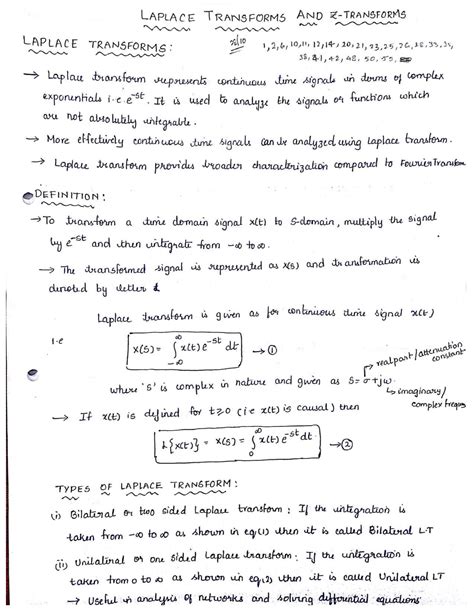 LAPLACE TRANSFORMS AND Z-TRANSFORMS
LAPLACE TRANSFORMS:
1,2,6,10,11,12,14,20,21,23,25,26,
→ Laplace transform represents continuous time signals in terms of complex
exponentials i.e e^-st. It is used to analyze the signals or functions which
are not absolutely integrable.
→ More effectively continuous time signals can be analyzed using Laplace transform.
→ Laplace transform provides broader characterization compared to Fourier Transform
DEFINITION:
→ To transform a time domain signal x(t) to S-domain, multiply the signal
by e^-st and then integrate from -∞ to ∞.
→ The transformed signal is represented as X(S) and transformation is
denoted by letter ℒ
Laplace transform is given as for continuous time signal x(t)
i.e X(S) = ∫_-∞^∞ x(t) e^-st dt → ①
real part/attenuation
constant
where 'S' is complex in nature and given as S = σ+jω
imaginary/
complex freqns
→ If x(t) is defined for t≥0 (i.e x(t) is causal) then
L{x(t)} = X(S) = ∫_0^∞ x(t) e^-st dt. → ②
TYPES OF LAPLACE TRANSFORM:
(i) Bilateral or two sided Laplace transform: If the integration is
taken from -∞ to ∞ as shown in eq(1) then it is called Bilateral L.T
(ii) Unilateral or one sided Laplace transform: If the integration is
taken from 0 to ∞ as shown in eq(2) then it is called Unilateral LT
→ Useful in analysis of networks and solving differential equations